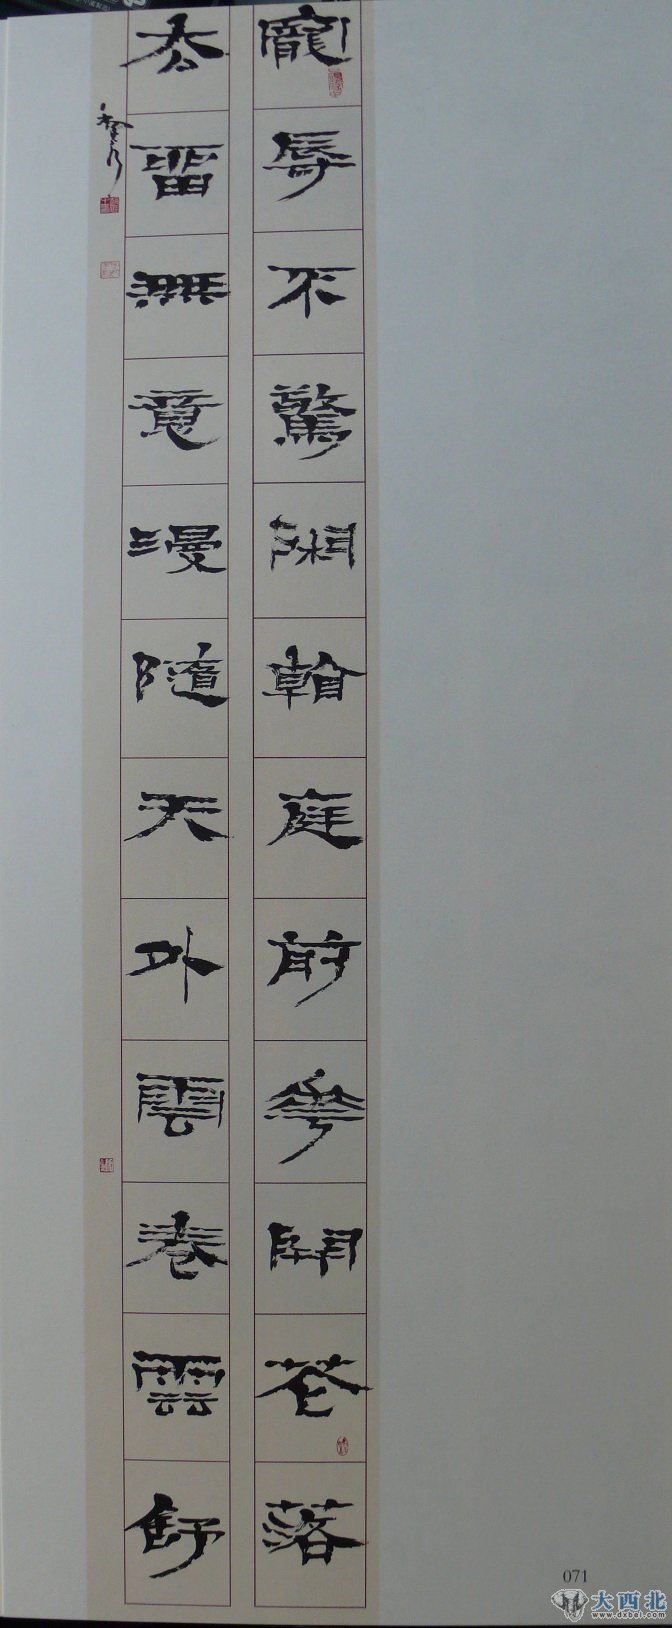 寵辱不驚閑看庭前華開花落
去留無意漫隨天外雲卷雲舒
071
大西北
www.dxbei.com